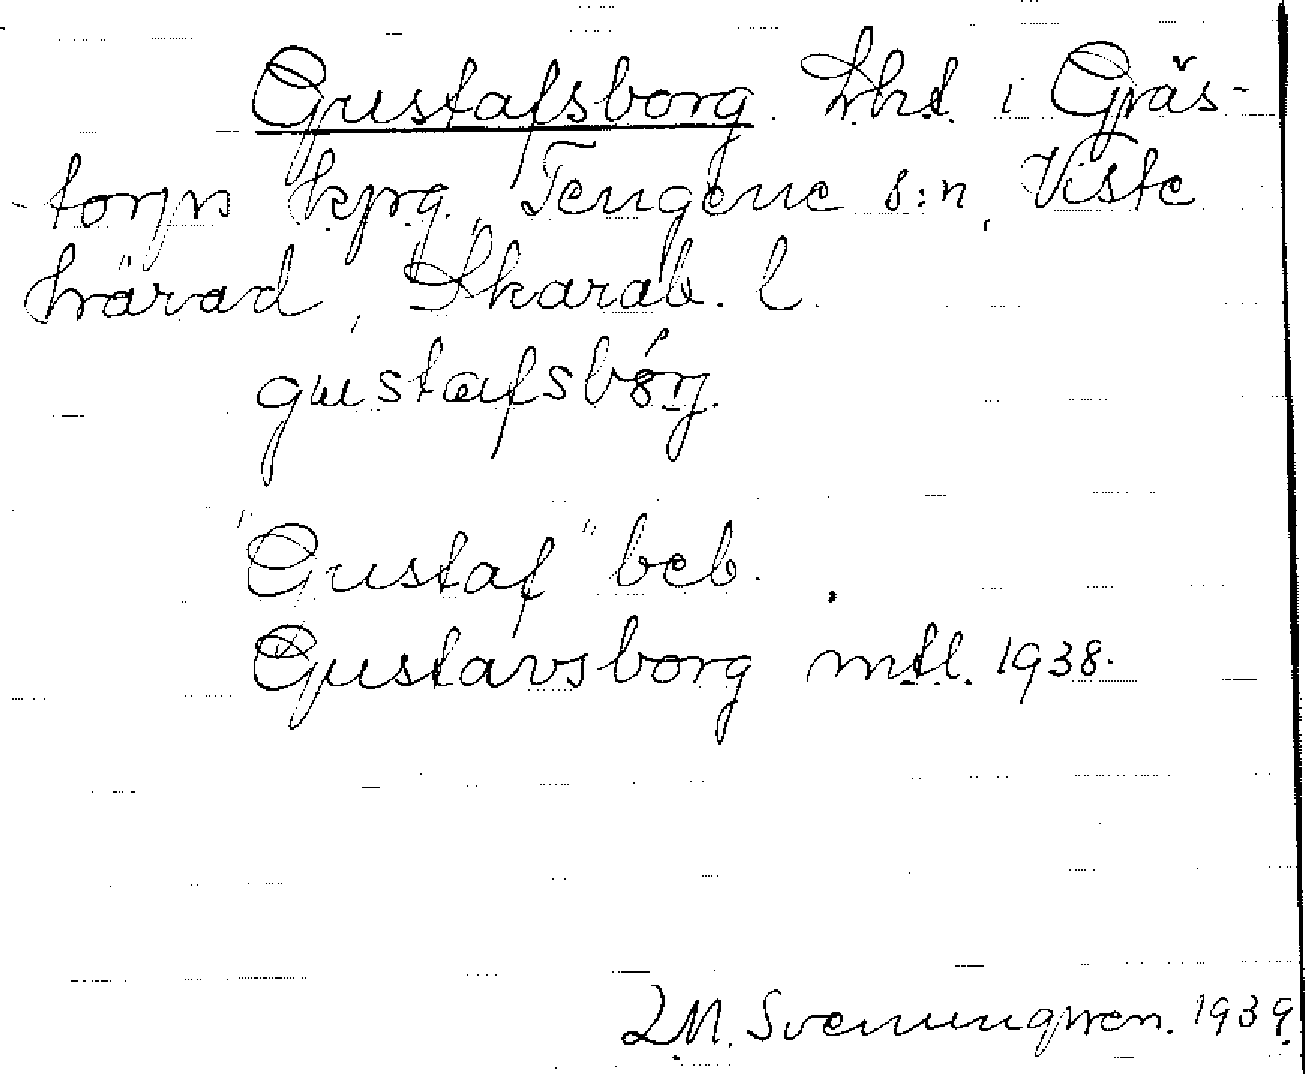 Gustafsborg. Lht. i Gräs-
-torps kpg., Tengene s:n, Viste
härad, Skarab. l.
gustafsbórg.
"Gustaf" beb.
Gustavsborg mtl. 1938.
1939.